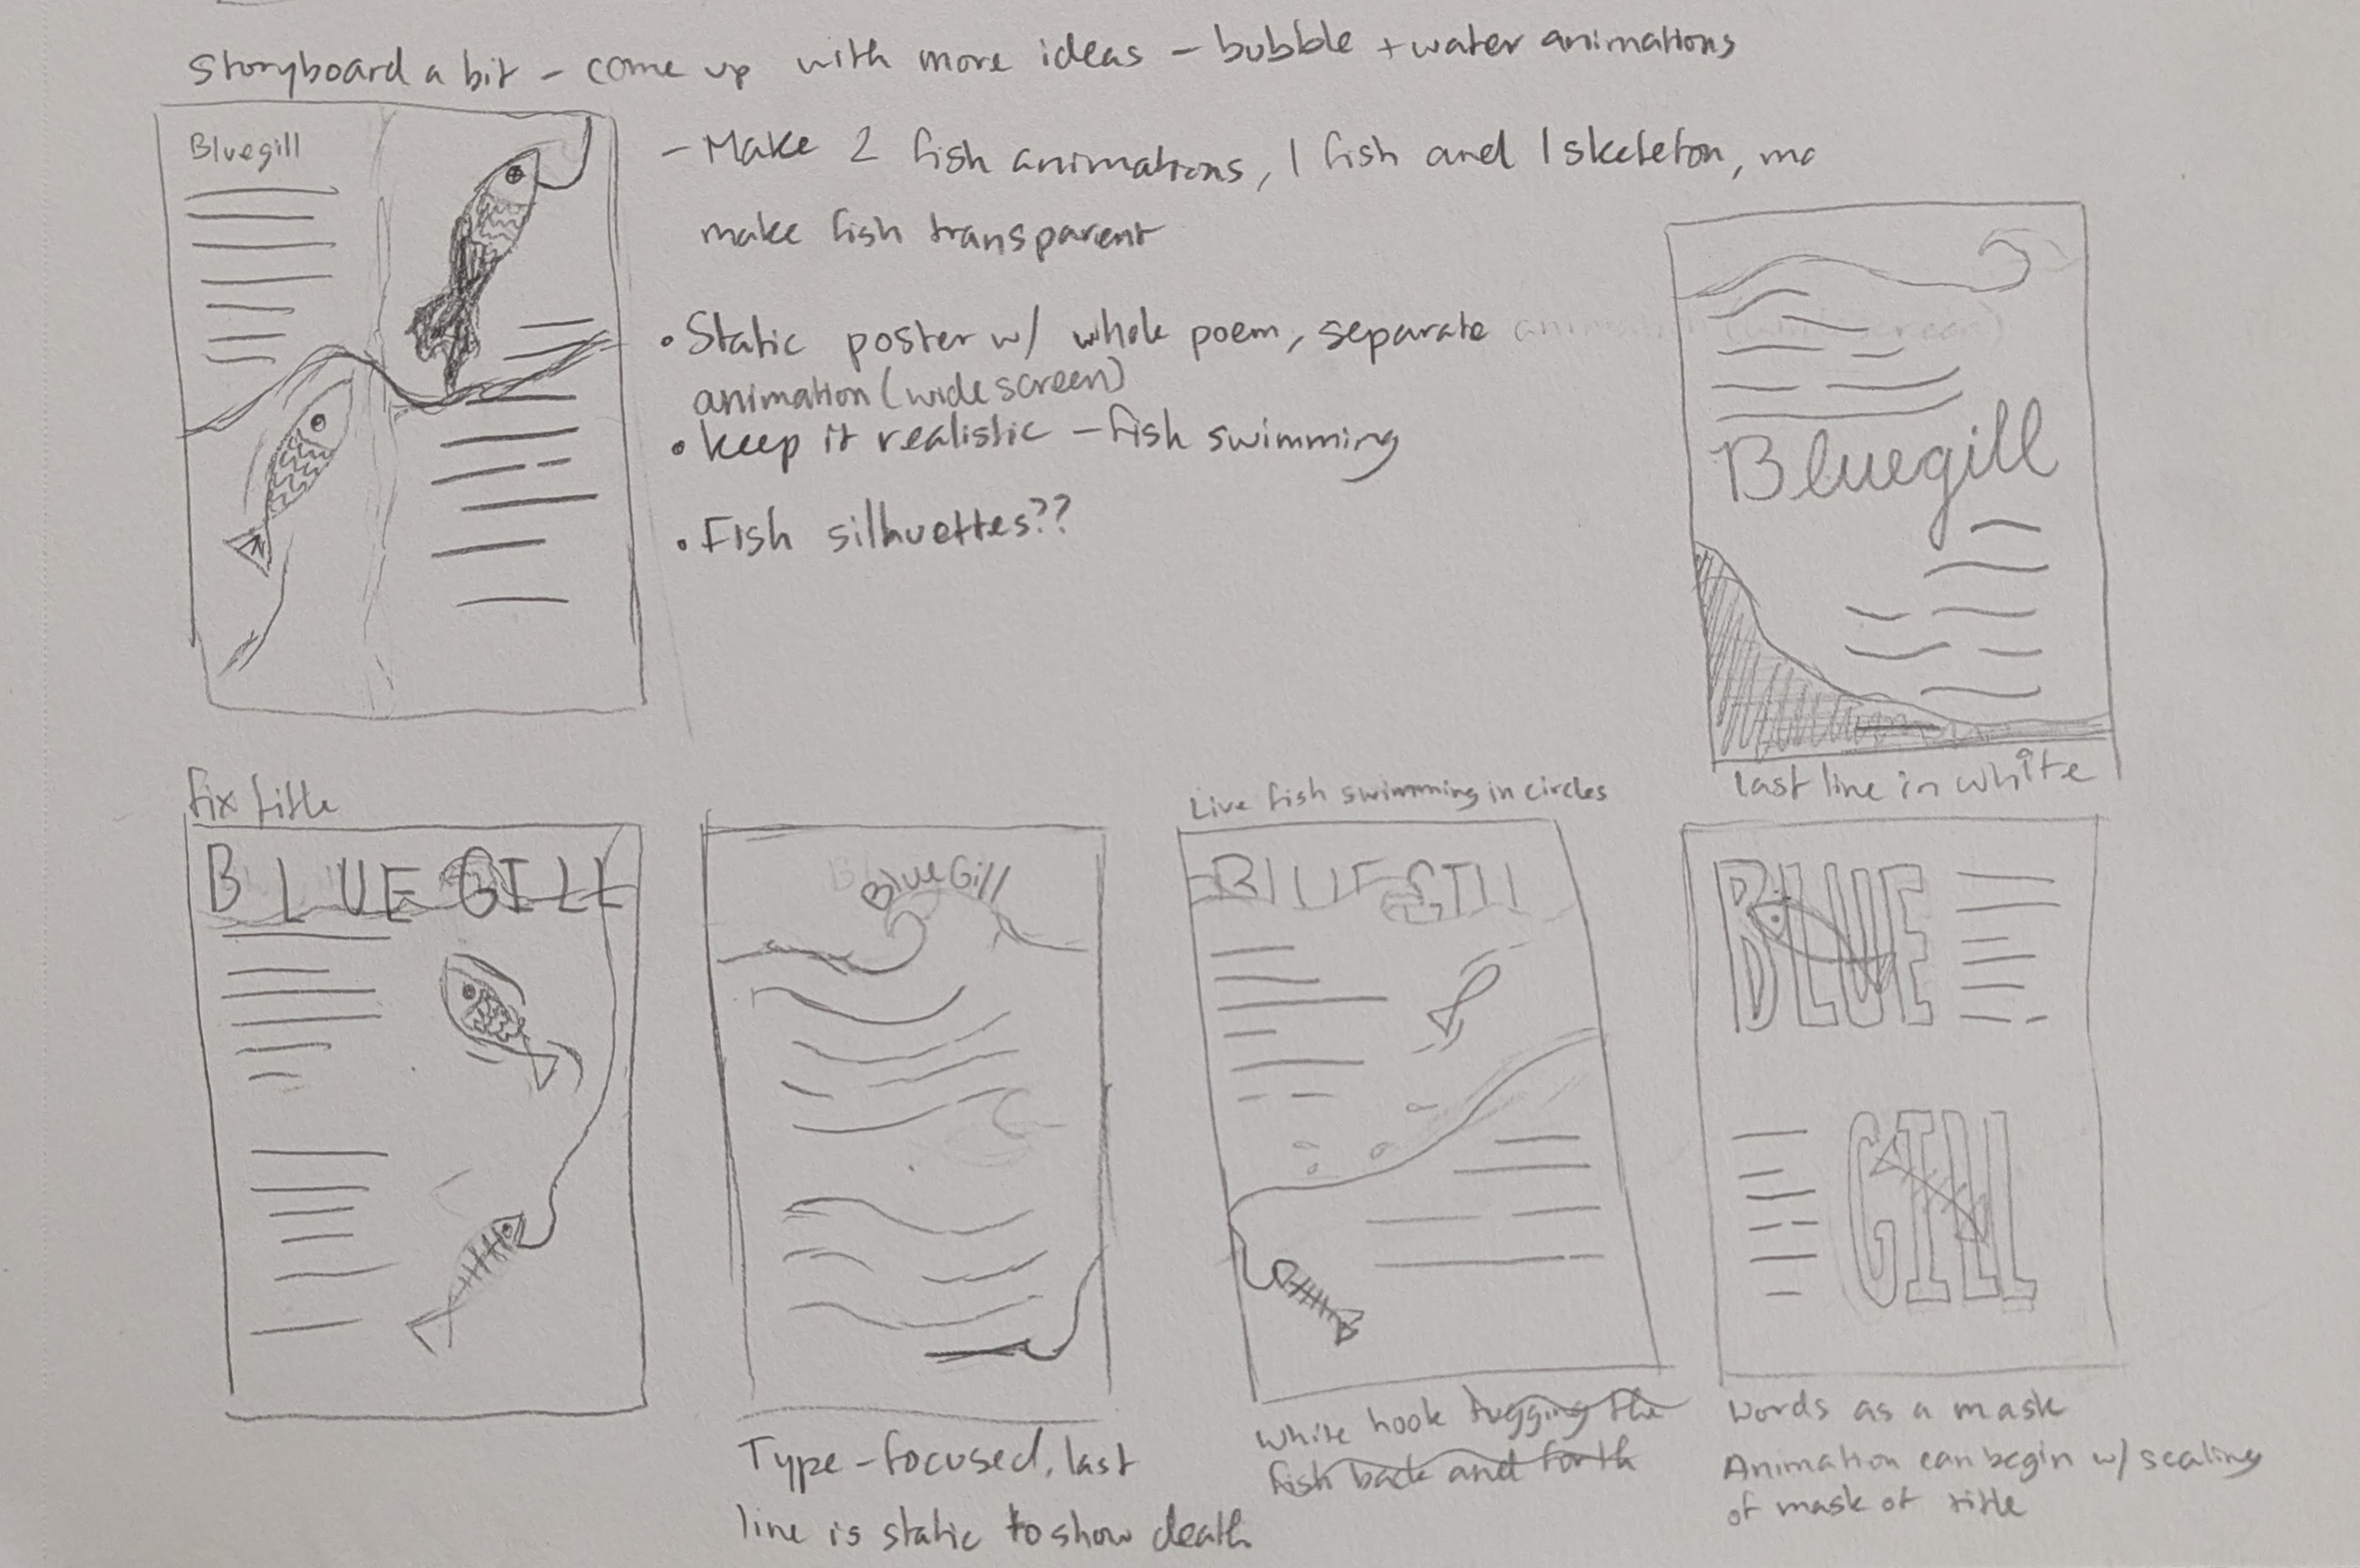 Storyboard a bit - come up with more ideas - bubble + water animations
Bluegill
- Make 2 fish animations, 1 fish and 1 skeleton, ma
make fish transparent
• Static poster w/ whole poem, separate
animation (wide screen)
• keep it realistic - fish swimming
• Fish silhuettes??
Bluegill
last line in white
fix title
BLUE GILL
BlueGill
Type-focused, last
line is static to show death
Live fish swimming in circles
BLUE GILL
White hook tugging the
fish back and forth
BLUE
GILL
Words as a mask
Animation can begin w/ scaling
of mask of title